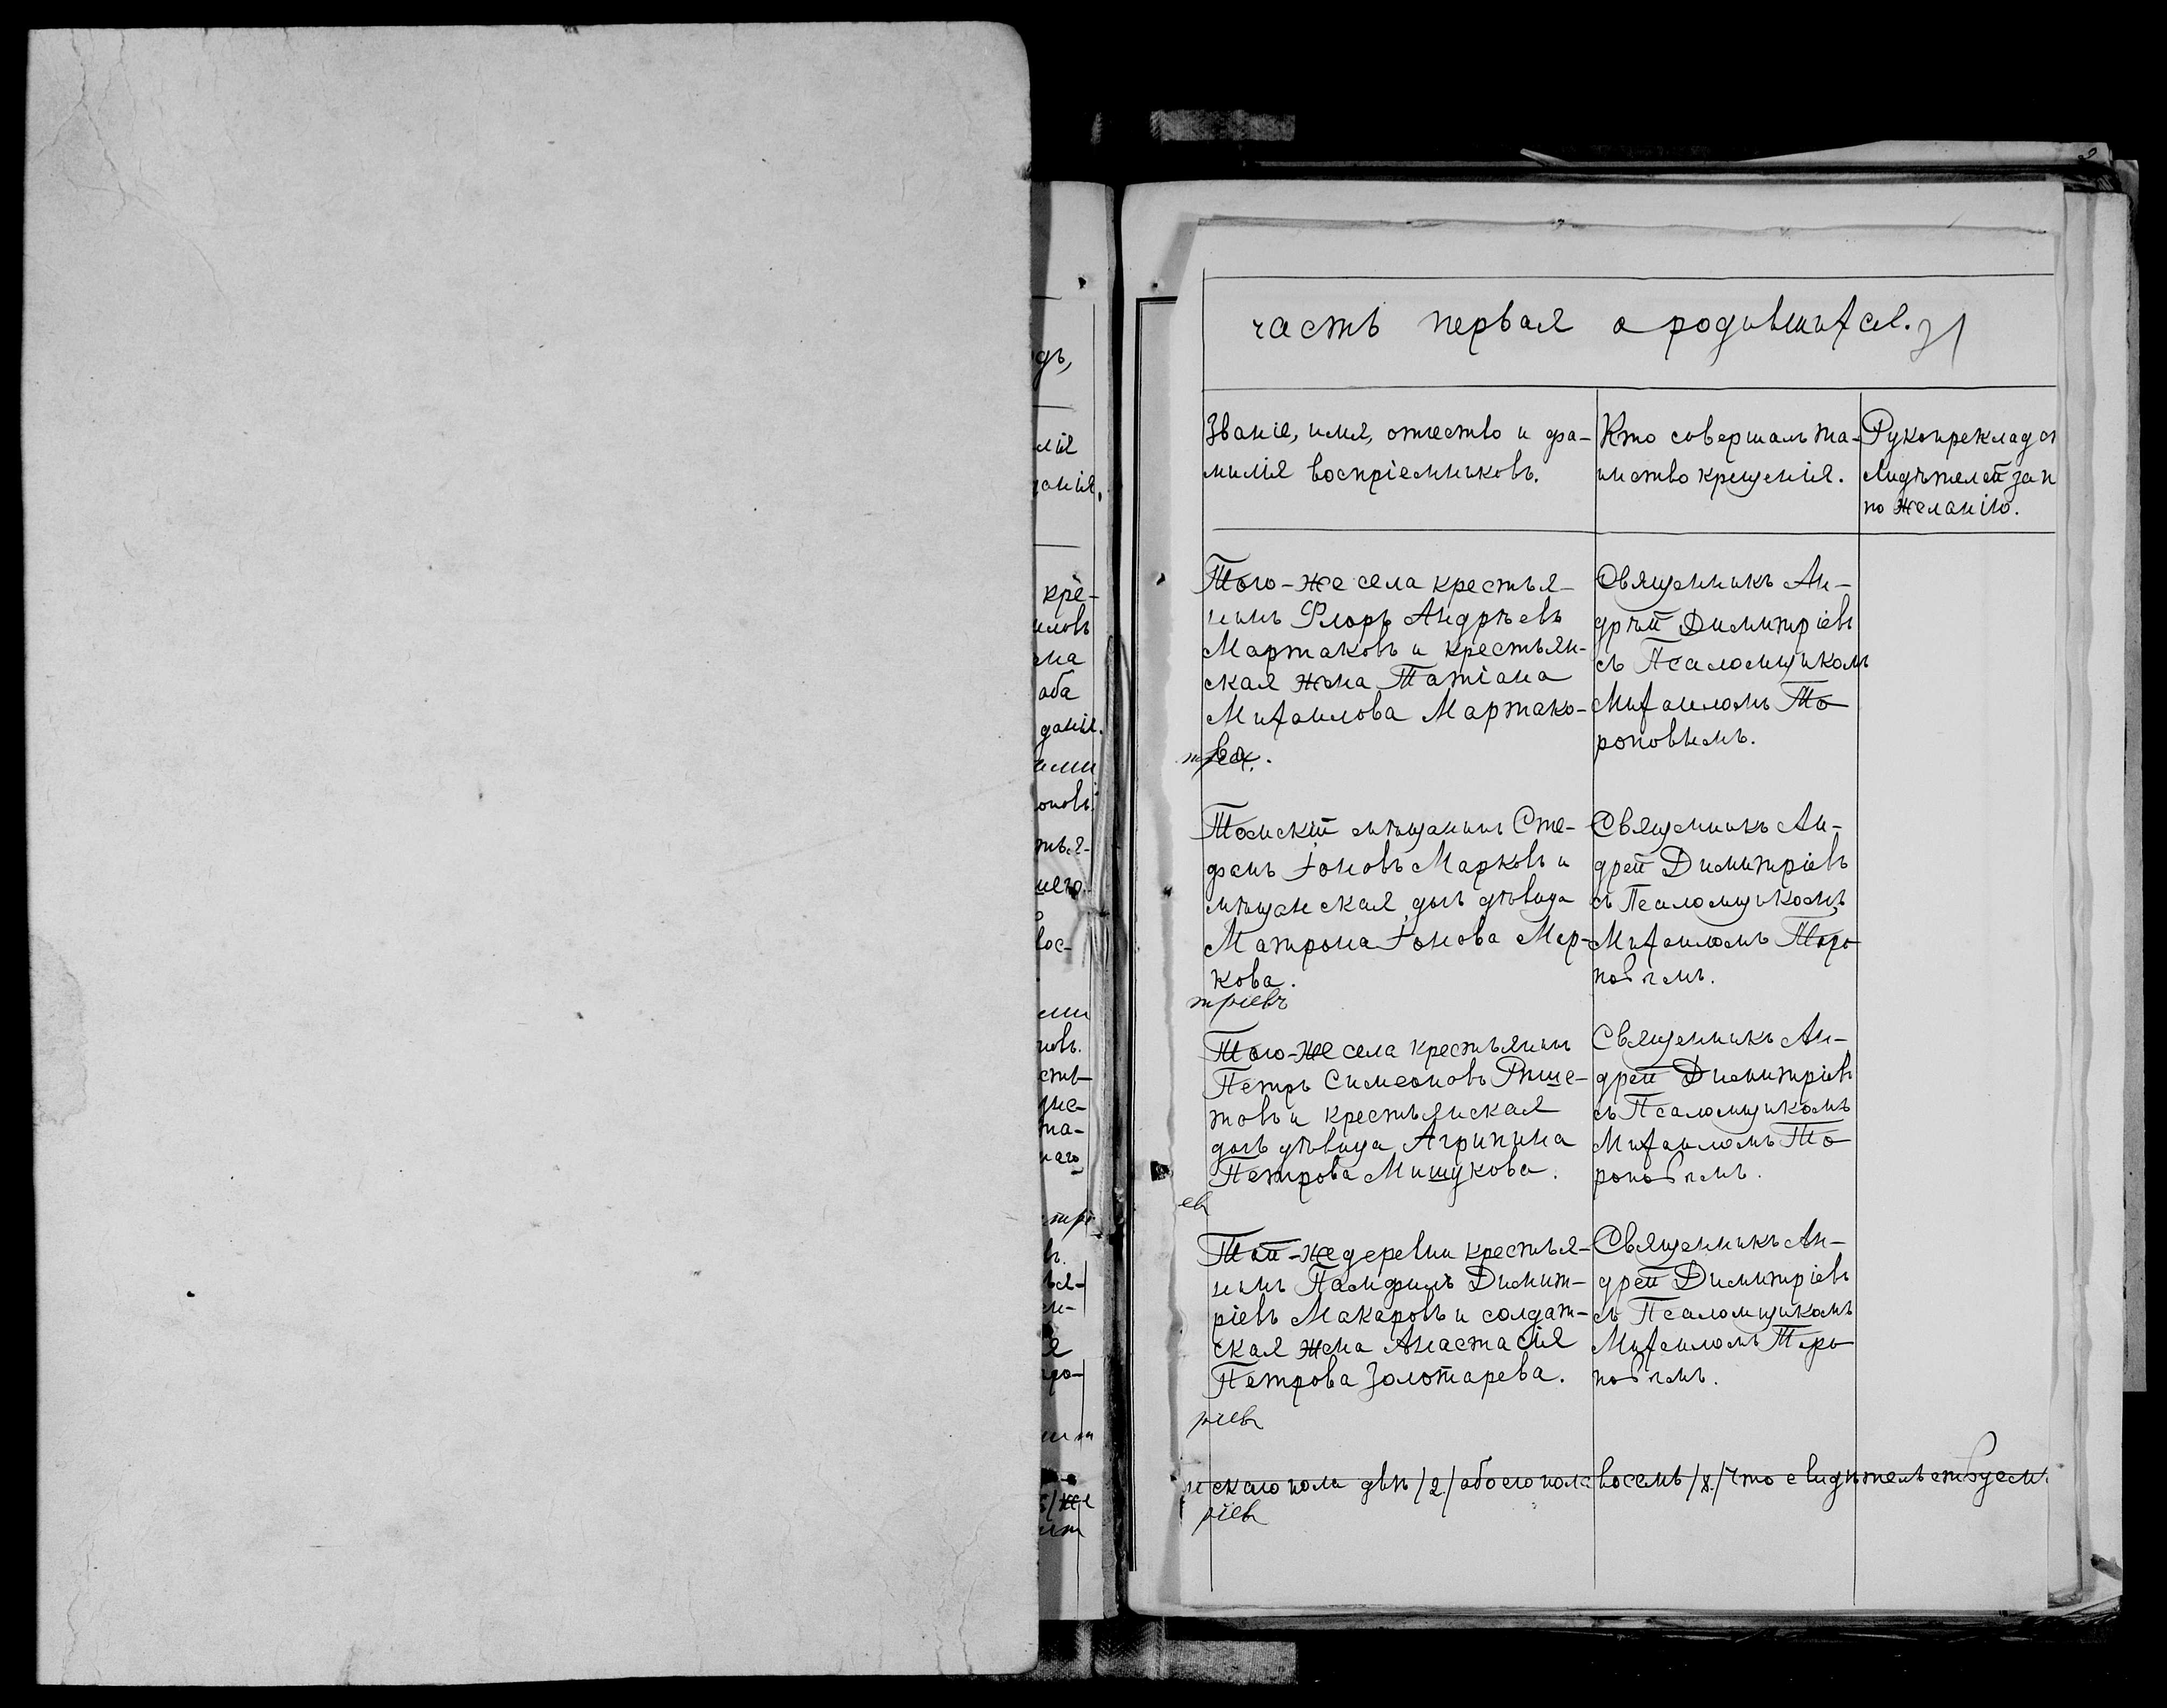 часть первая о родившихся. 31
Званіе, имя, отчество и фа-
милія воспріемниковъ.
Кто совершалъ та-
инство крещенія.
Рукоприклад
видѣтелей зап
по желанію.
Того-же села крестья-
нинъ Флоръ Андрѣевъ
Мартаковъ и крестьян-
ская жена Татіана
Михаилова Мартако-
ва.
Священникъ Ан-
дрѣй Димитріевъ
съ Псаломщикомъ
Михаиломъ То-
роповымъ.
Томскій мѣщанинъ Сте-
фанъ Іоновъ Марковъ и
мѣщанская дочь дѣвица
Матрона Іонова Мар-
кова.
тріевъ
Священникъ Ан-
дрей Димитріевъ
съ Псаломщикомъ
Михаиломъ Торо-
повымъ.
Того-же села крестьянинъ
Петръ Симеоновъ Рѣше-
товъ и крестьянская
дочь дѣвица Агрипина
Петрова Мишукова.
ев
Священникъ Ан-
дрей Димитріевъ
съ Псаломщикомъ
Михаиломъ То-
роповымъ.
Той-же деревни крестья-
нинъ Памфилъ Димит-
ріевъ Макаровъ и солдат-
ская жена Анастасія
Петрова Золотарева.
ріевъ
Священникъ Ан-
дрей Димитріевъ
съ Псаломщикомъ
Михаиломъ Торо-
повымъ.
нскаго пола двѣ /2/ обоего пола восемь /8/ Что свидѣтельствуемъ.
ріевъ